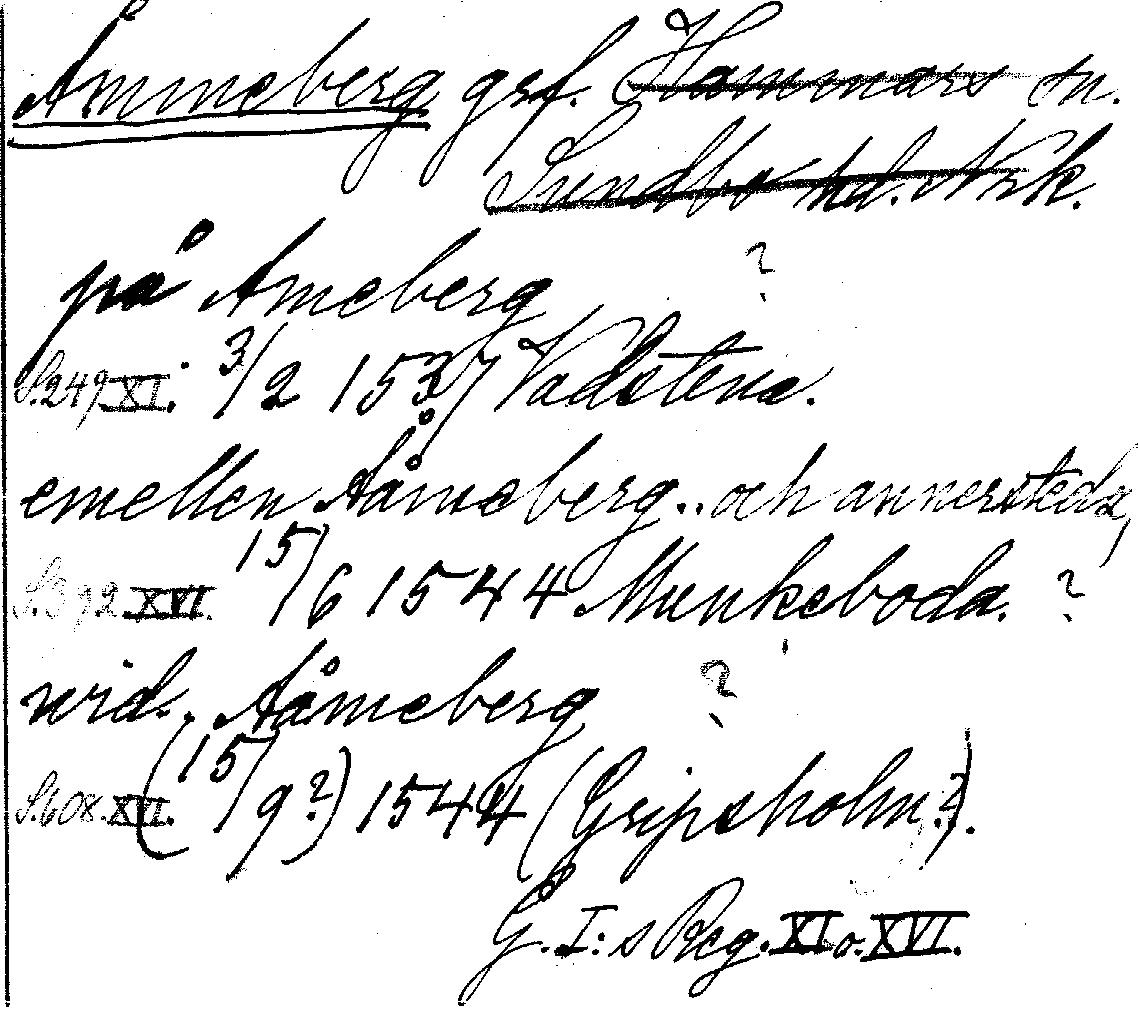 Åmmeberg grf. Hammars sn.
Sundbo hd. Nrk.
på Ameberg ?
S.249 XI. 3/2 1537 Vadstena.
emellen Aåmeberg .. och annerstedz,
S.392 XVI. 15/6 1544 Munkeboda. ?
wid. Aåmeberg ?
S.608. XVI. (15/9?) 1544 (Gripsholm?).
G. I:s Reg. XI o. XVI.